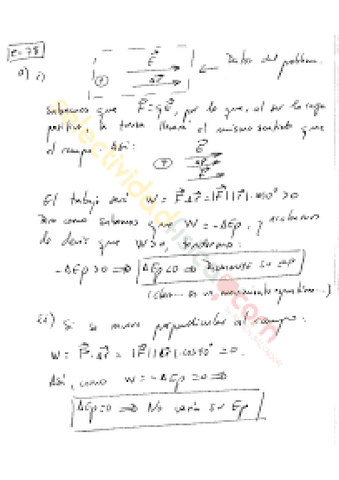 e-78
a) i)
E
Δr
← Datos del problema.
Sabemos que F=qE, por lo que, al ser la carga
positiva, la fuerza llevará el mismo sentido que
el campo. Así:
E
Δr
F
El trabajo será W = F·Δr = |F||r|·cos0° > 0
Pero como sabemos que W = -ΔEp, y acabamos
de decir que W>0, tendremos:
-ΔEp>0 ⇒ ΔEp<0 ⇒ Disminuye su Ep
(Claro es un movimiento espontáneo...)
ii) Si se mueve perpendicular al campo:
W = F·Δr = |F||Δr|·cos90° = 0.
Así, como W = -ΔEp = 0 ⇒
ΔEp=0 ⇒ No varía su Ep
selectividadfisica.com